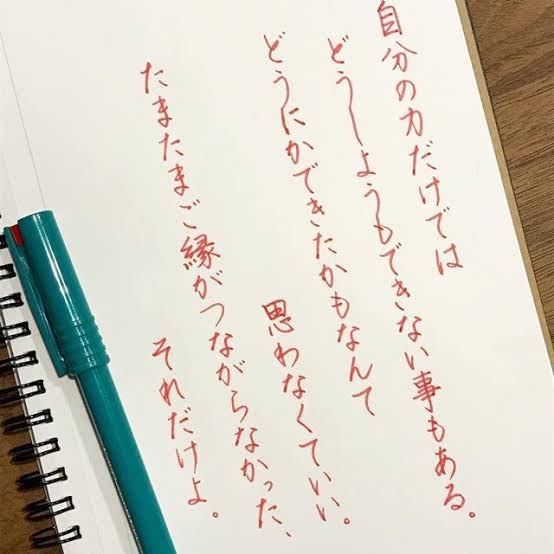 自分の力だけでは
どうしようもできない事もある。
どうにかできたかもなんて
思わなくていい。
たまたまご縁がつながらなかった、
それだけよ。